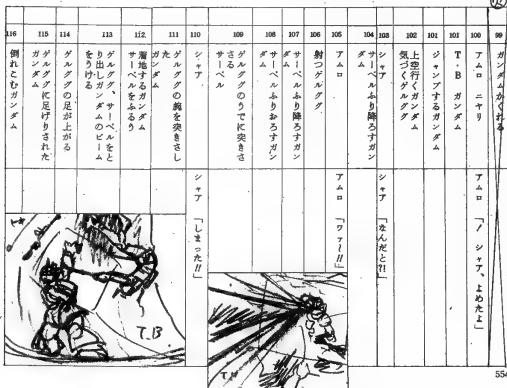 99
ガンダムかくれる
100
アムロ　ニヤリ
アムロ　「！　シャア、よめたよ」
101
T・B　ガンダム
101
ジャンプするガンダム
102
上空行くガンダム
気づくゲルググ
103
シャア
シャア　「なんだと?!」
104
サーベルふり降ろすガン
ダム
105
アムロ
アムロ　「ワァ〜!!」
106
射つゲルググ
107
サーベルふり降ろすガン
ダム
108
サーベルふりおろすガン
ダム
109
ゲルググのうでに突きさ
さる
サーベル
110
シャア
シャア　「しまった!!」
111
ゲルググの腕を突きさし
た
ガンダム
112
着地するガンダム
サーベルをふるう
113
ゲルググ、サーベルをと
り出しガンダムのビーム
をうける
114
ゲルググの足が上がる
115
ゲルググに足げりされた
ガンダム
116
倒れこむガンダム
T.B
554